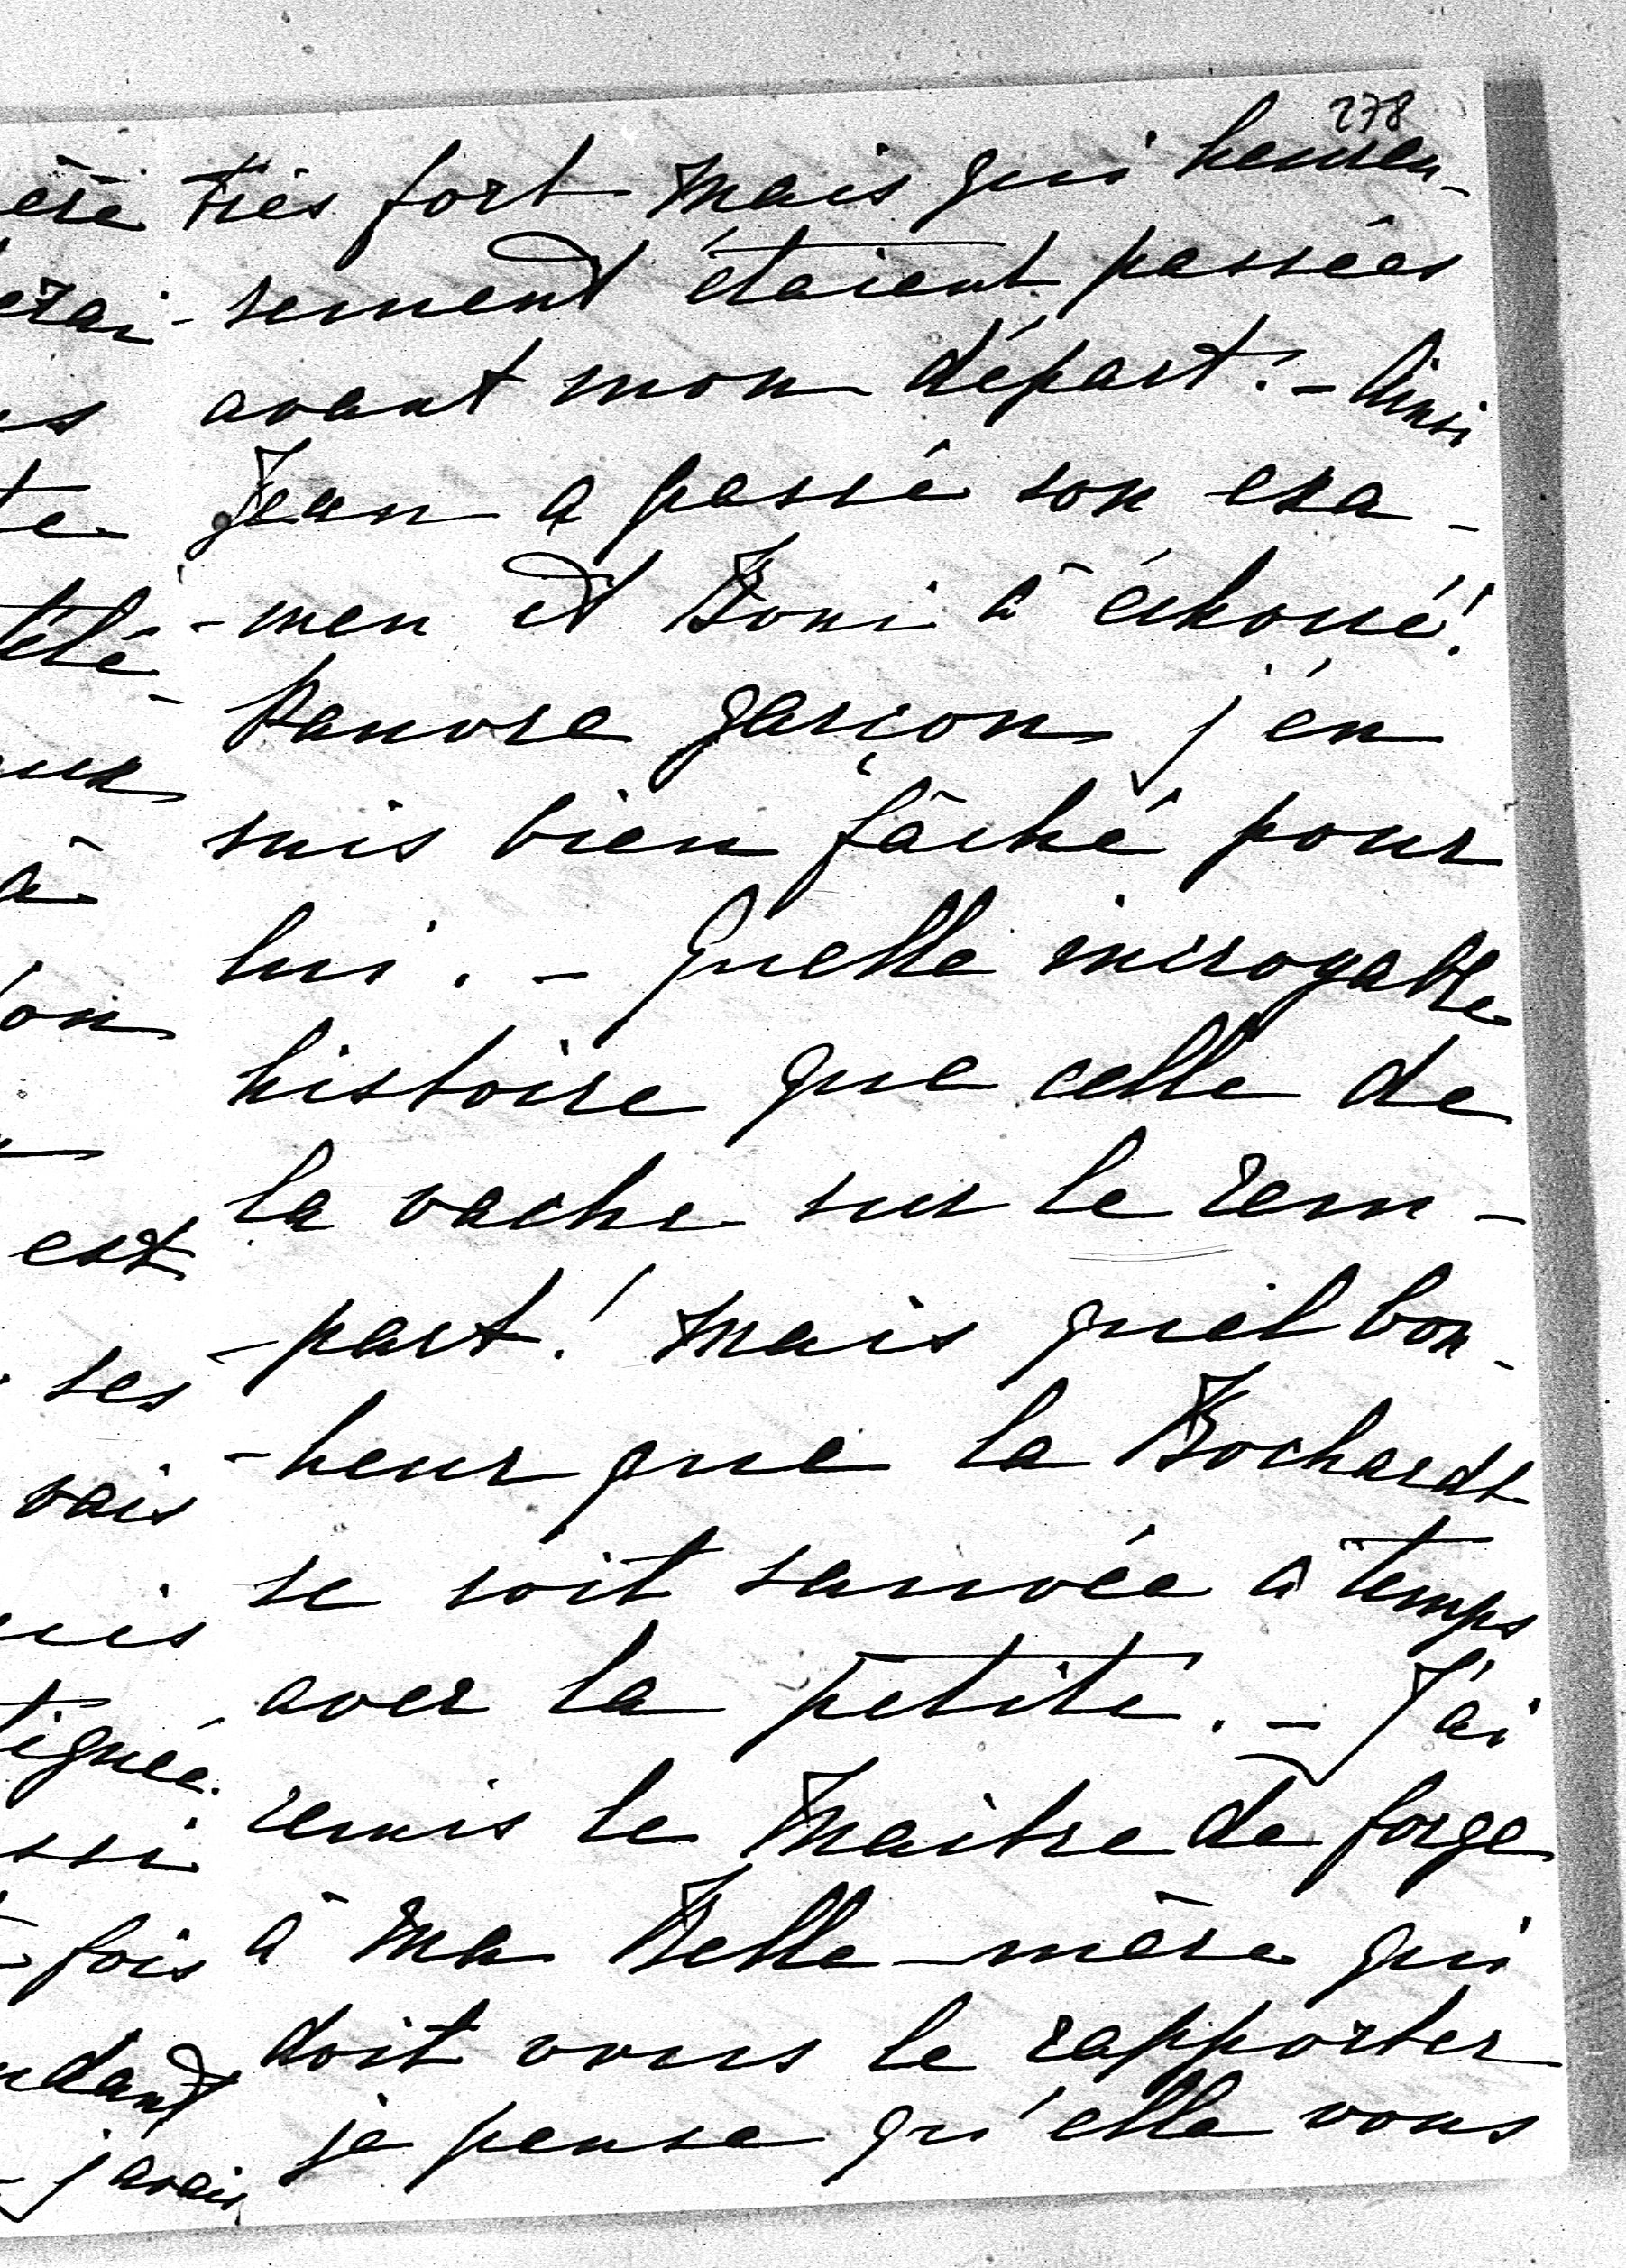 278
très fort mais qui heureu-
sement étaient passées
avant mon départ. - Ainsi
Jean a passé son exa-
-men et Boni a échoué!
Pauvre garçon j'en
suis bien fâché pour
lui. - Quelle incroyable
histoire que celle de
la vache sur le rem-
-part! Mais quel bon-
-heur que la Bochardt
se soit sauvée à temps
avec la petite. - J'ai
remis le Maitre de forge
à ma Belle-mère qui
doit vous le rapporter
je pense qu'elle vous
est
ses
vais
fois
j'avais